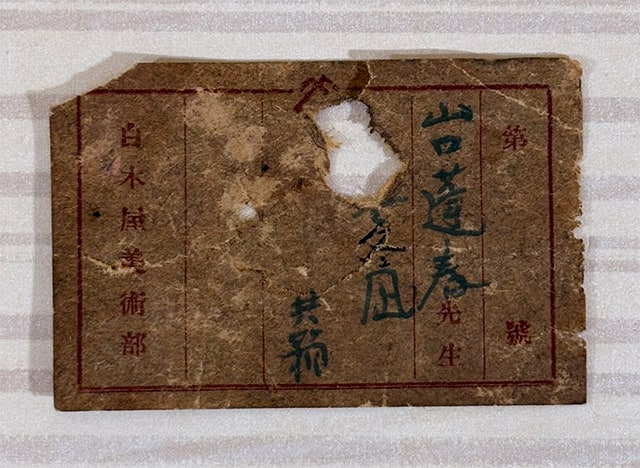 第 號
山口蓬春先生
凪
共箱
白木屋美術部